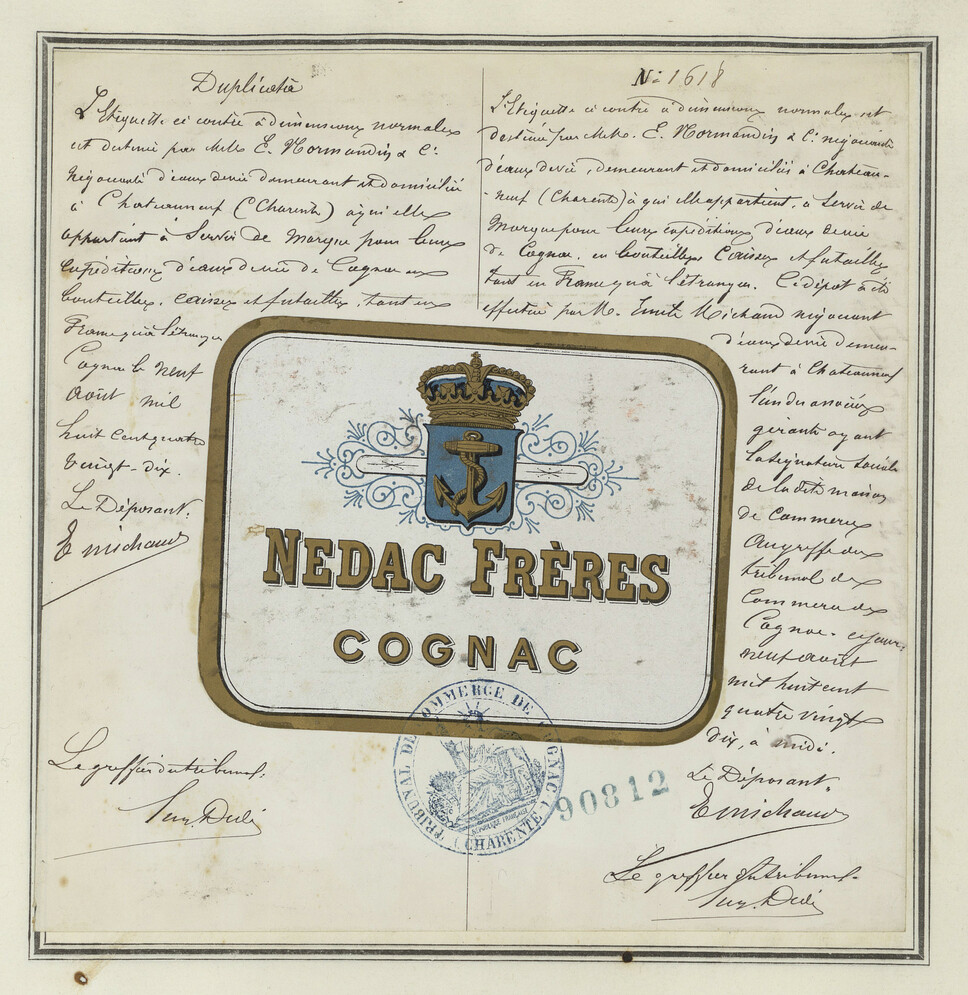 Duplicata
L'Etiquette ci contre à dimensions normales
est destinée par MMrs E. Normandin & Cie
négociants d'eaux de vie demeurant et domiciliés
à Chateauneuf (Charente) à qui elle
appartient à Servir de Marque pour leurs
expéditions d'eaux de vie de Cognac en
bouteilles, caisses et futailles, tant en
France qu'à l'étranger
Cognac le neuf
Août mil
huit cent quatre
vingt-dix.
Le Déposant.
E Michaud
Le greffier du tribunal.
No 1618
L'Etiquette ci contre à dimensions normales est
destinée par MMrs. E. Normandin & Cie négociants
d'eaux de vie, demeurant et domiciliés à Chateau-
-neuf (Charente) à qui elle appartient, à Servir de
Marque pour leurs expéditions d'eaux de vie
de Cognac, en bouteilles, Caisses et futailles
tant en France qu'à l'étranger. Ce dépôt a été
effectué par M. Emile Michaud négociant
d'eaux de vie demeu-
rant à Chateauneuf
l'un des associés
gérants ayant
la signature sociale
de la dite maison
de Commerce
Au greffe du
tribunal de
Commerce de
Cognac. ce jour
neuf août
mil huit cent
quatre vingt
dix, à midi.
Le Déposant.
E Michaud
Le greffier du tribunal.
NEDAC FRÈRES
COGNAC
TRIBUNAL DE COMMERCE DE COGNAC
(CHARENTE)
RÉPUBLIQUE FRANÇAISE
90812